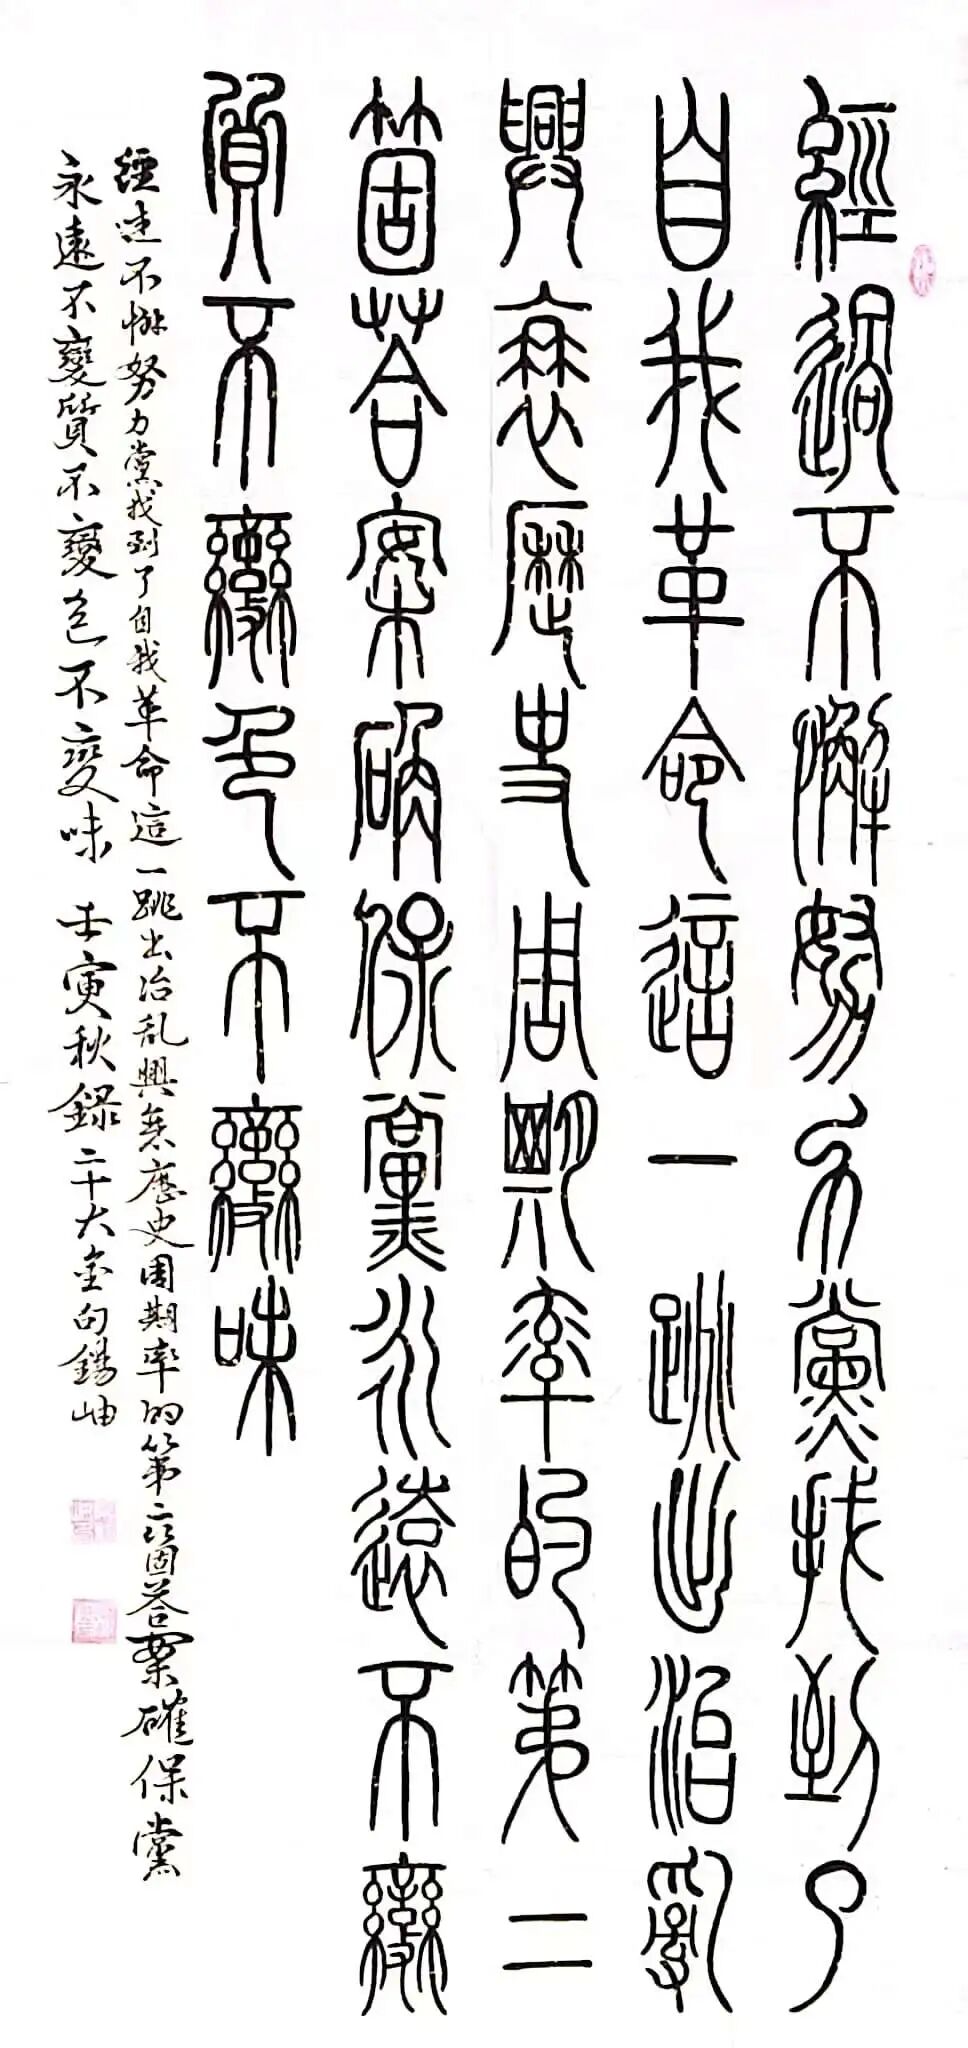 經過不懈努力黨找到了
自我革命這一跳出治亂
興衰歷史周期率的第二
箇答案確保黨永遠不變
質不變色不變味
經過不懈努力黨找到了自我革命這一跳出治乱興衰歷史周期率的第二箇答案確保黨
永遠不變質不變色不變味 壬寅秋錄二十大金句錫岫